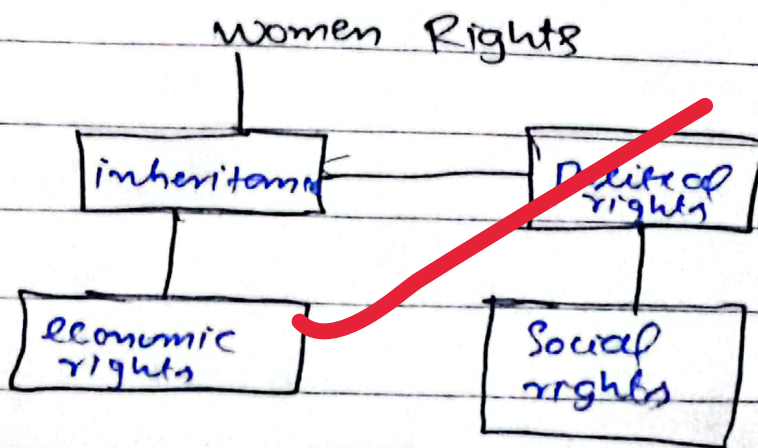 Women Rights
inheritann
Political
rights
economic
rights
Social
rights